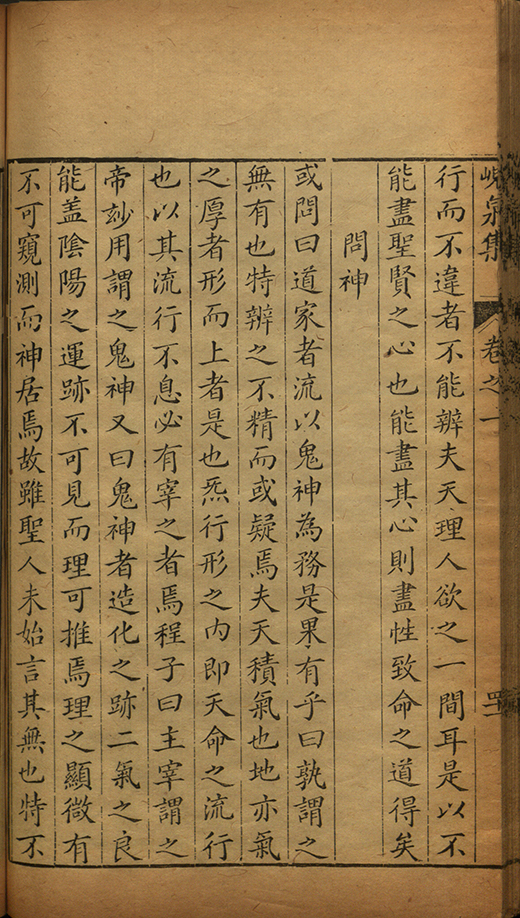 峴泉集 卷之一
行而不違者不能辨夫天理人欲之一間耳是以不
能盡聖賢之心也能盡其心則盡性致命之道得矣
問神
或問曰道家者流以鬼神為務是果有乎曰孰謂之
無有也特辨之不精而或疑焉夫天積氣也地亦氣
之厚者形而上者是也炁行形之內即天命之流行
也以其流行不息必有宰之者焉程子曰主宰謂之
帝玅用謂之鬼神又曰鬼神者造化之跡二氣之良
能盖陰陽之運跡不可見而理可推焉理之顯微有
不可窺測而神居焉故雖聖人未始言其無也特不